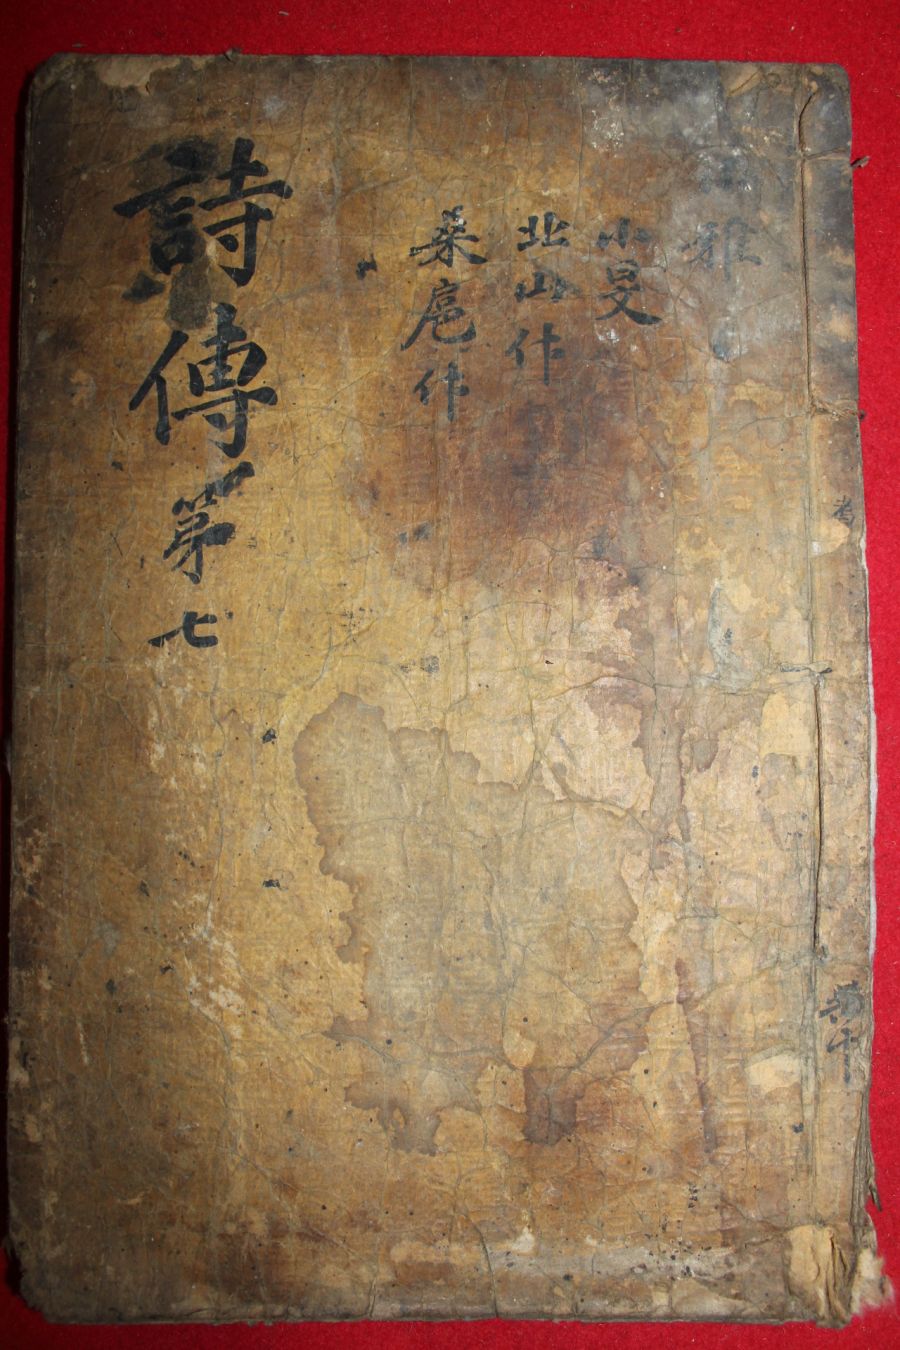 雅
小旻
北山什
桑扈什
詩傳第七